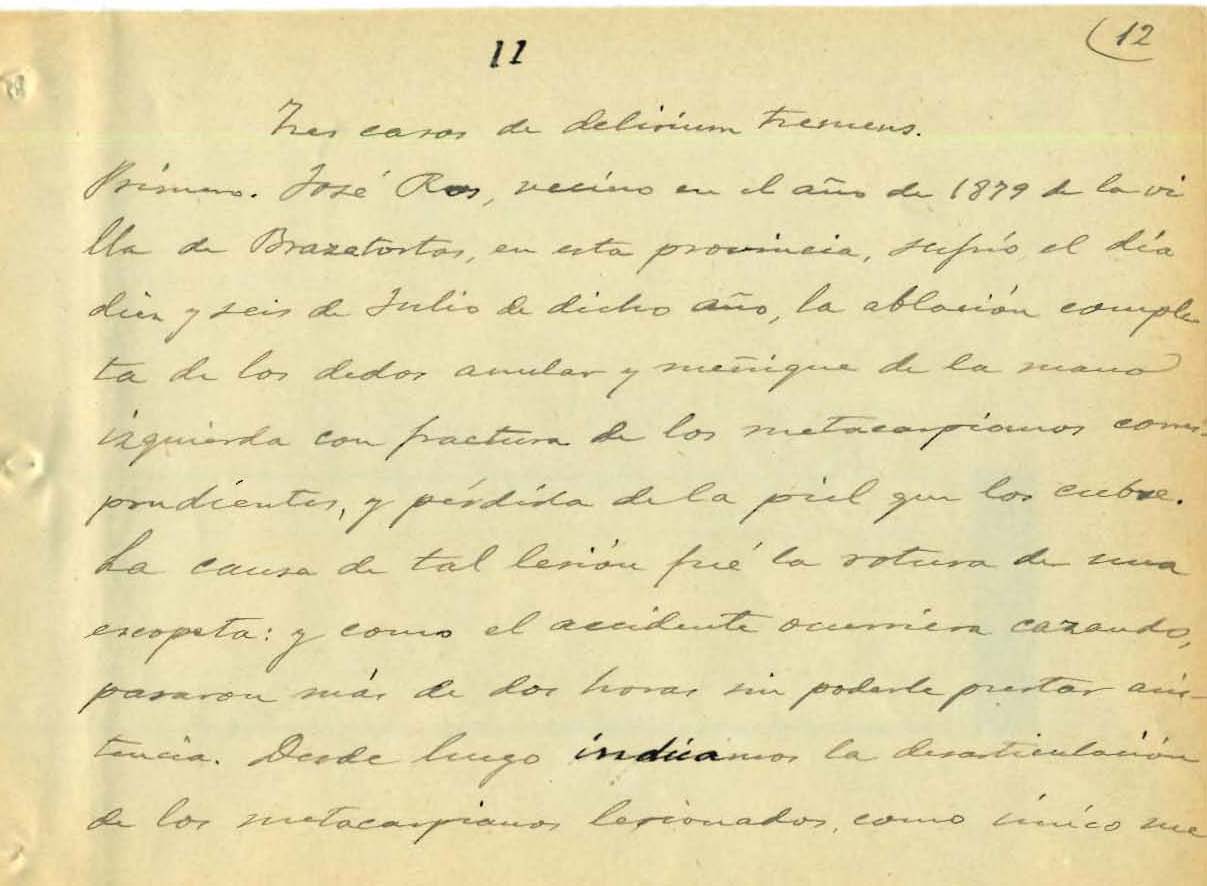 11
12
Tres casos de delirium tremens.
Primero. José Ros, vecino en el año de 1879 de la vi
lla de Brazatortas, en esta provincia, sufrió el día
diez y seis de Julio de dicho año, la ablación comple
ta de los dedos anular y meñique de la mano
izquierda con fractura de los metacarpianos corres-
pondientes, y pérdida de la piel que los cubre.
La causa de tal lesión fué la rotura de una
escopeta: y como el accidente ocurriera cazando,
pasaron más de dos horas sin poderle prestar asis-
tencia. Desde luego indicamos la desarticulación
de los metacarpianos lesionados, como único me